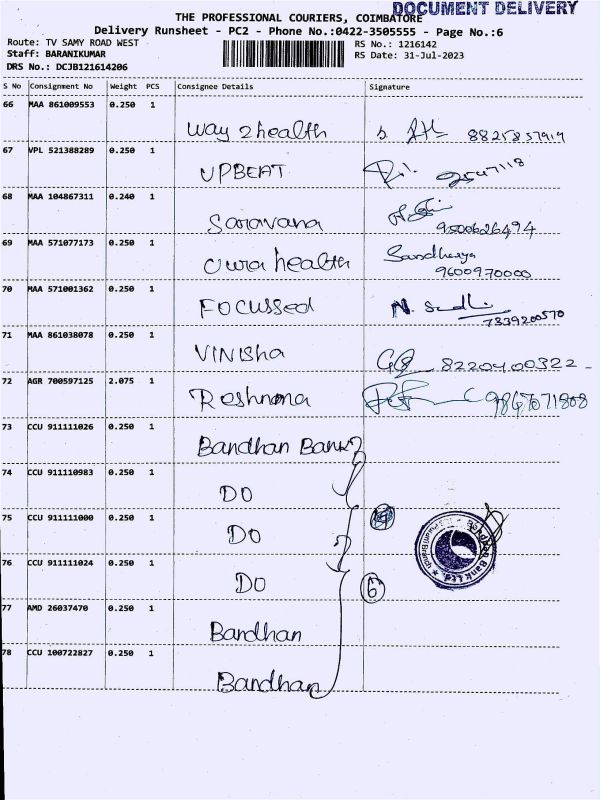 DOCUMENT DELIVERY
THE PROFESSIONAL COURIERS, COIMBATORE
Delivery Runsheet - PC2 - Phone No.:0422-3505555 - Page No.:6
Route: TV SAMY ROAD WEST RS No.: 1216142
Staff: BARANIKUMAR RS Date: 31-Jul-2023
DRS No.: DCJB121614206
S No Consignment No Weight PCS Consignee Details Signature
66 MAA 861009553 0.250 1
Way 2health 8825857919
67 VPL 521388289 0.250 1
UPBEAT
68 MAA 104867311 0.240 1
Saravana 9500626494
69 MAA 571077173 0.250 1
Cura health Sandhiya
9600970000
70 MAA 571001362 0.250 1
FOCUSSED 7339200570
71 MAA 861038078 0.250 1
VINISHA 8220400322
72 AGR 700597125 2.075 1
Reshma 9847071808
73 CCU 911111026 0.250 1
Bandhan Bank
74 CCU 911110983 0.250 1
DO
75 CCU 911111000 0.250 1
DO
76 CCU 911111024 0.250 1
DO 6
77 AMD 26037470 0.250 1
Bandhan
78 CCU 100722827 0.250 1
Bandhan
Bandhan Bank Ltd.